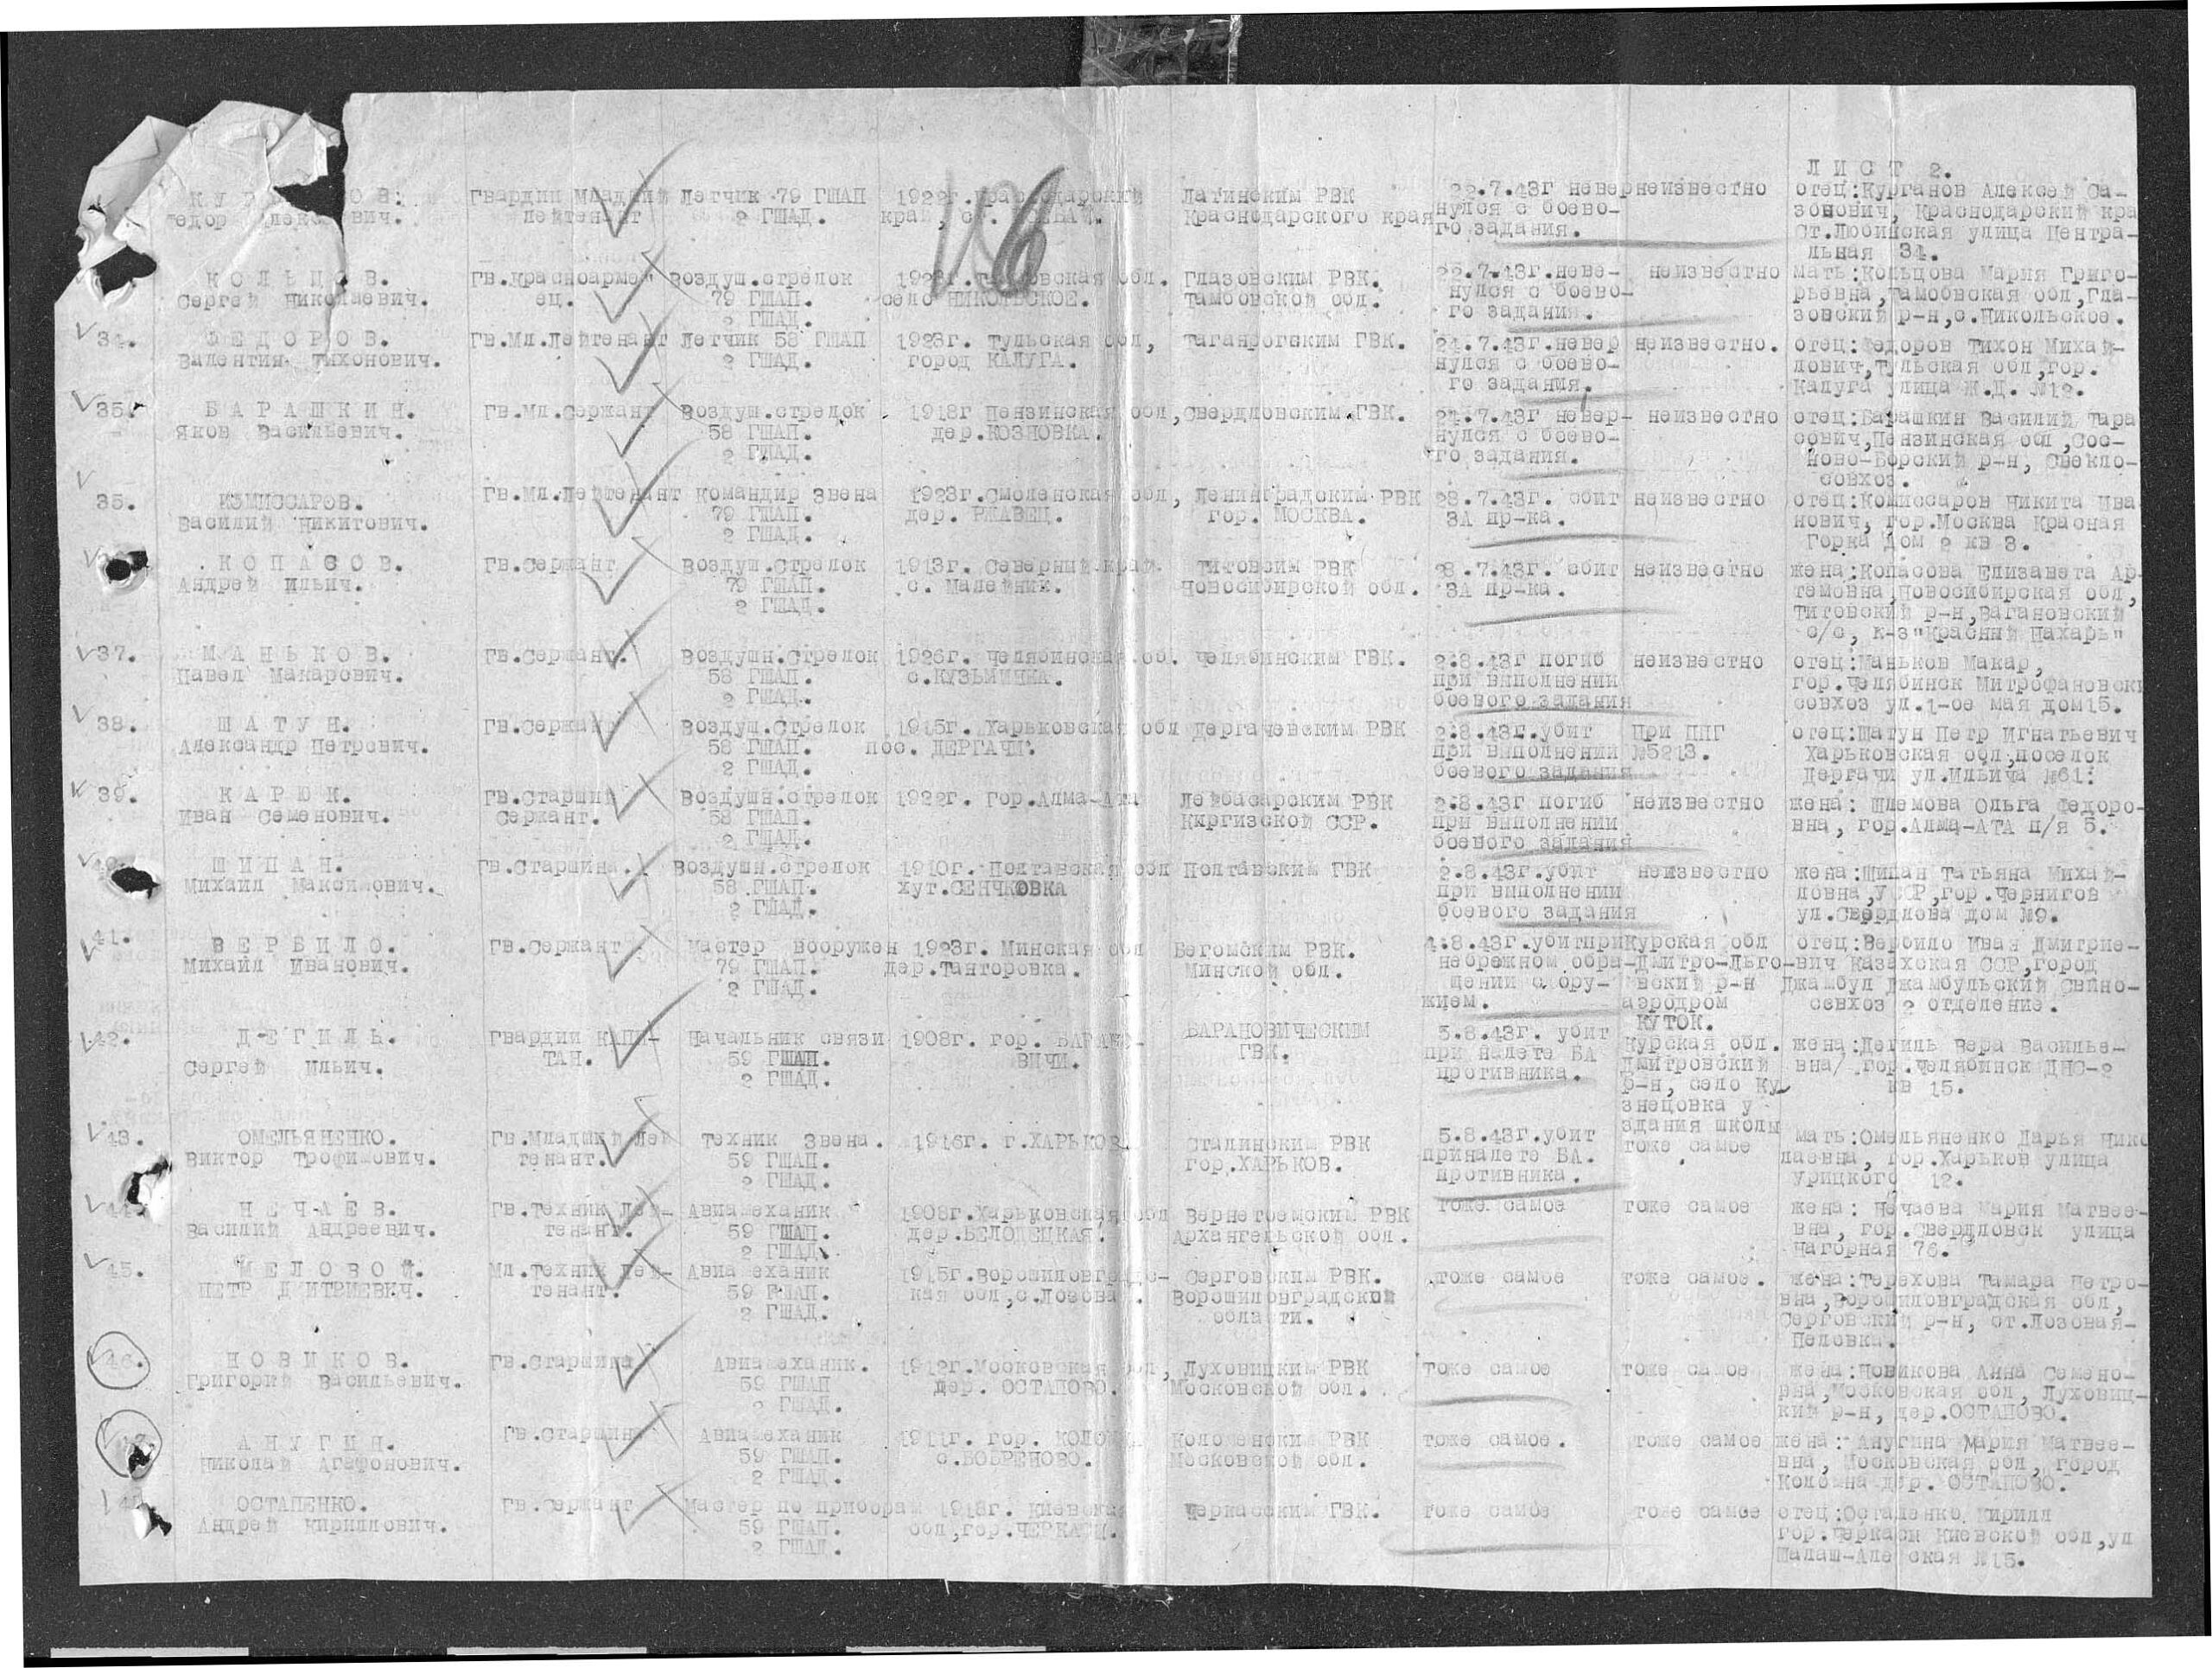 ЛИСТ 2.
Гвардии Младший лейтенант
Летчик 79 ГШАП 2 ГШАД.
1922г. Краснодарский край,
Краснодарского края
22.7.43г невернулся с боевого задания.
неизвестно
отец:Курганов Алексей Сазонович, Краснодарский кра
льная 34.
КОЛЬЦОВ.
Сергей Николаевич.
Гв.Красноармеец.
Воздуш.стрелок
79 ГШАП.
2 ГШАД.
село НИКОЛЬСКОЕ.
Глазовским РВК.
Тамбовской обл.
22.7.43г.неве-
нулся с боево-
го задания.
неизвестно
мать:Кольцова Мария Григо-
рьевна,Тамбовская обл,Гла-
зовский р-н,с.Никольское.
34.
ФЕДОРОВ.
Валентин Тихонович.
Гв.Мл.Лейтенант
Летчик 58 ГШАП
2 ГШАД.
1923г. Тульская обл,
город КАЛУГА.
Таганрогским ГВК.
24.7.43г.невер
нулся с боево-
го задания.
неизвестно.
отец:Федоров Тихон Михай-
лович,Тульская обл,гор.
Калуга улица Ж.Д. №12.
35.
БАРАШКИН.
Яков Васильевич.
Гв.Мл.Сержант
Воздуш.стрелок
58 ГШАП.
2 ГШАД.
1918г Пензинская обл,
дер.КОЗЛОВКА.
Свердловским,ГВК.
24.7.43г невер-
нулся с боево-
го задания.
неизвестно
отец:Барашкин Василий Тара
сович,Пензинская обл,Сос-
ново-Борский р-н, Свекло-
совхоз.
35.
КОМИССАРОВ.
Василий Никитович.
Гв.Мл.Лейтенант
Командир Звена
79 ГШАП.
2 ГШАД.
1923г.Смоленская обл,
дер. РЖАВЕЦ.
Ленинградским РВК
гор. МОСКВА.
28.7.43г. сбит
ЗА пр-ка.
неизвестно
отец:Комиссаров Никита Ива
нович, гор.Москва Красная
Горка дом 2 кв 3.
КОПАСОВ.
Андрей Ильич.
Гв.Сержант
Воздуш.Стрелок
79 ГШАП.
2 ГШАД.
1913г. Северный край.
с. Малейник.
Титовсим РВК
Новосибирской обл.
28.7.43г. сбит
ЗА пр-ка.
неизвестно
жена:Копасова Елизавета Ар-
темовна,Новосибирская обл,
Титовский р-н,Вагановский
с/с, к-з"Красный Пахарь"
37.
МАНЬКОВ.
Павел Макарович.
Гв.Сержант.
Воздушн.Стрелок
58 ГШАП.
2 ГШАД.
1926г. Челябинская об.
с.КУЗЬМИНКА.
Челябинским ГВК.
2.8.43г погиб
при выполнении
боевого задания
неизвестно
отец:Маньков Макар,
гор.Челябинск Митрофановски
совхоз ул.1-ое мая дом15.
38.
ШАТУН.
Александр Петрович.
Гв.Сержант
Воздуш.Стрелок
58 ГШАП.
2 ГШАД.
1915г. Харьковская обл
пос. ДЕРГАЧИ.
Дергачевским РВК
2.8.43г.убит
при выполнении
боевого задания
При ППГ
№5213.
отец:Шатун Петр Игнатьевич
Харьковская обл,поселок
Дергачи ул.Ильича №61.
39.
КАРЮК.
Иван Семенович.
Гв.Старший
Сержант.
Воздушн.стрелок
58 ГШАП.
2 ГШАД.
1922г. гор.Алма-Ата
Киргизской ССР.
2.8.43г погиб
при выполнении
боевого задания
неизвестно
жена: Шлемова Ольга Федоро-
вна, гор.Алма-АТА п/я 5.
40.
ШИПАН.
Михаил Максимович.
Гв.Старшина.
Воздушн.стрелок
58 ГШАП.
2 ГШАД.
1910г. Полтавская обл
хут.СЕНЧКОВКА
Полтавским ГВК
2.8.43г.убит
при выполнении
боевого задания
неизвестно
жена:Шипан Татьяна Михай-
ловна,УССР,гор.Чернигов
ул.Свердлова дом №9.
41.
ВЕРБИЛО.
Михаил Иванович.
Гв.Сержант
Мастер вооружен
79 ГШАП.
2 ГШАД.
1923г. Минская обл
дер.Танторовка.
Бегомским РВК.
Минской обл.
4.8.43г.убитпри
небрежном обра-
щении с ору-
жием.
Курская обл
Дмитро-Льго-
вский р-н
аэродром
КУТОК.
отец:Вербило Иван Дмитрие-
вич Казахская ССР,город
Джамбул Джамбульский Свино-
совхоз 2 отделение.
42.
ДЕГИЛЬ.
Сергей Ильич.
Гвардии КАПИ-
ТАН.
Начальник связи
59 ГШАП.
2 ГШАД.
1908г. гор. БАРАНО-
ВИЧИ.
БАРАНОВИЧЕСКИМ
ГВК.
5.8.43г. убит
при налете ВА
противника.
Курская обл.
Дмитровский
р-н, село Ку-
знецовка у
здания школы
жена:Дегиль Вера Василье-
вна/ гор.Челябинск ДНС-2
кв 15.
43.
ОМЕЛЬЯНЕНКО.
Виктор Трофимович.
Гв.Младший Лей
тенант.
Техник Звена.
59 ГШАП.
2 ГШАД.
1916г. г.ХАРЬКОВ.
Сталинским РВК
гор.ХАРЬКОВ.
5.8.43г.убит
приналете ВА.
противника.
тоже самое
мать:Омельяненко Дарья Нико
лаевна, гор.Харьков улица
Урицкого 12.
44.
НЕЧАЕВ.
Василий Андреевич.
Гв.Техник Лей-
тенант.
Авиамеханик
59 ГШАП.
2 ГШАД.
1908г.Харьковская обл
дер.БЕЛОЛЕЦКАЯ.
Архангельской обл.
тоже самое
тоже самое
жена: Нечаева Мария Матвее-
вна, гор.Свердловск улица
Нагорная 76.
45.
МЕЛОВОЙ.
ПЕТР ДМИТРИЕВИЧ.
Мл.Техник Лей-
тенант.
Авиамеханик
59 ГШАП.
2 ГШАД.
1915г.Ворошиловградс-
кая обл,с.Лозовая.
Серговским РВК.
Ворошиловградской
области.
тоже самое
тоже самое.
жена:Терехова Тамара Петро-
вна,Ворошиловградская обл,
Серговский р-н, ст.Лозовая-
46.
НОВИКОВ.
Григорий Васильевич.
Гв.Старшина
Авиамеханик.
59 ГШАП
2 ГШАД.
1912г.Московская обл,
дер. ОСТАПОВО.
Луховицким РВК
Московской обл.
тоже самое
тоже самое
жена:Новикова Анна Семено-
вна,Московская обл, Луховиц-
кий р-н, дер.ОСТАПОВО.
АНУГИН.
Николай Агафонович.
Гв.Старшина
Авиамеханик
59 ГШАП.
2 ГШАД.
1911г. гор. КОЛОМНА
с.БОБРЕНОВО.
Коломенским РВК
Московской обл.
тоже самое.
тоже самое
жена: Анугина Мария Матвее-
вна, Московская обл, город
Коломна дер. ОСТАПОВО.
ОСТАПЕНКО.
Андрей Кириллович.
Гв.Сержант
Мастер по приборам
59 ГШАП.
2 ГШАД.
1918г. Киевская
обл,гор.ЧЕРКАСЫ.
Черкасским ГВК.
тоже самое
тоже самое
отец:Остапенко Кирилл
гор.Черкасы Киевской обл,ул